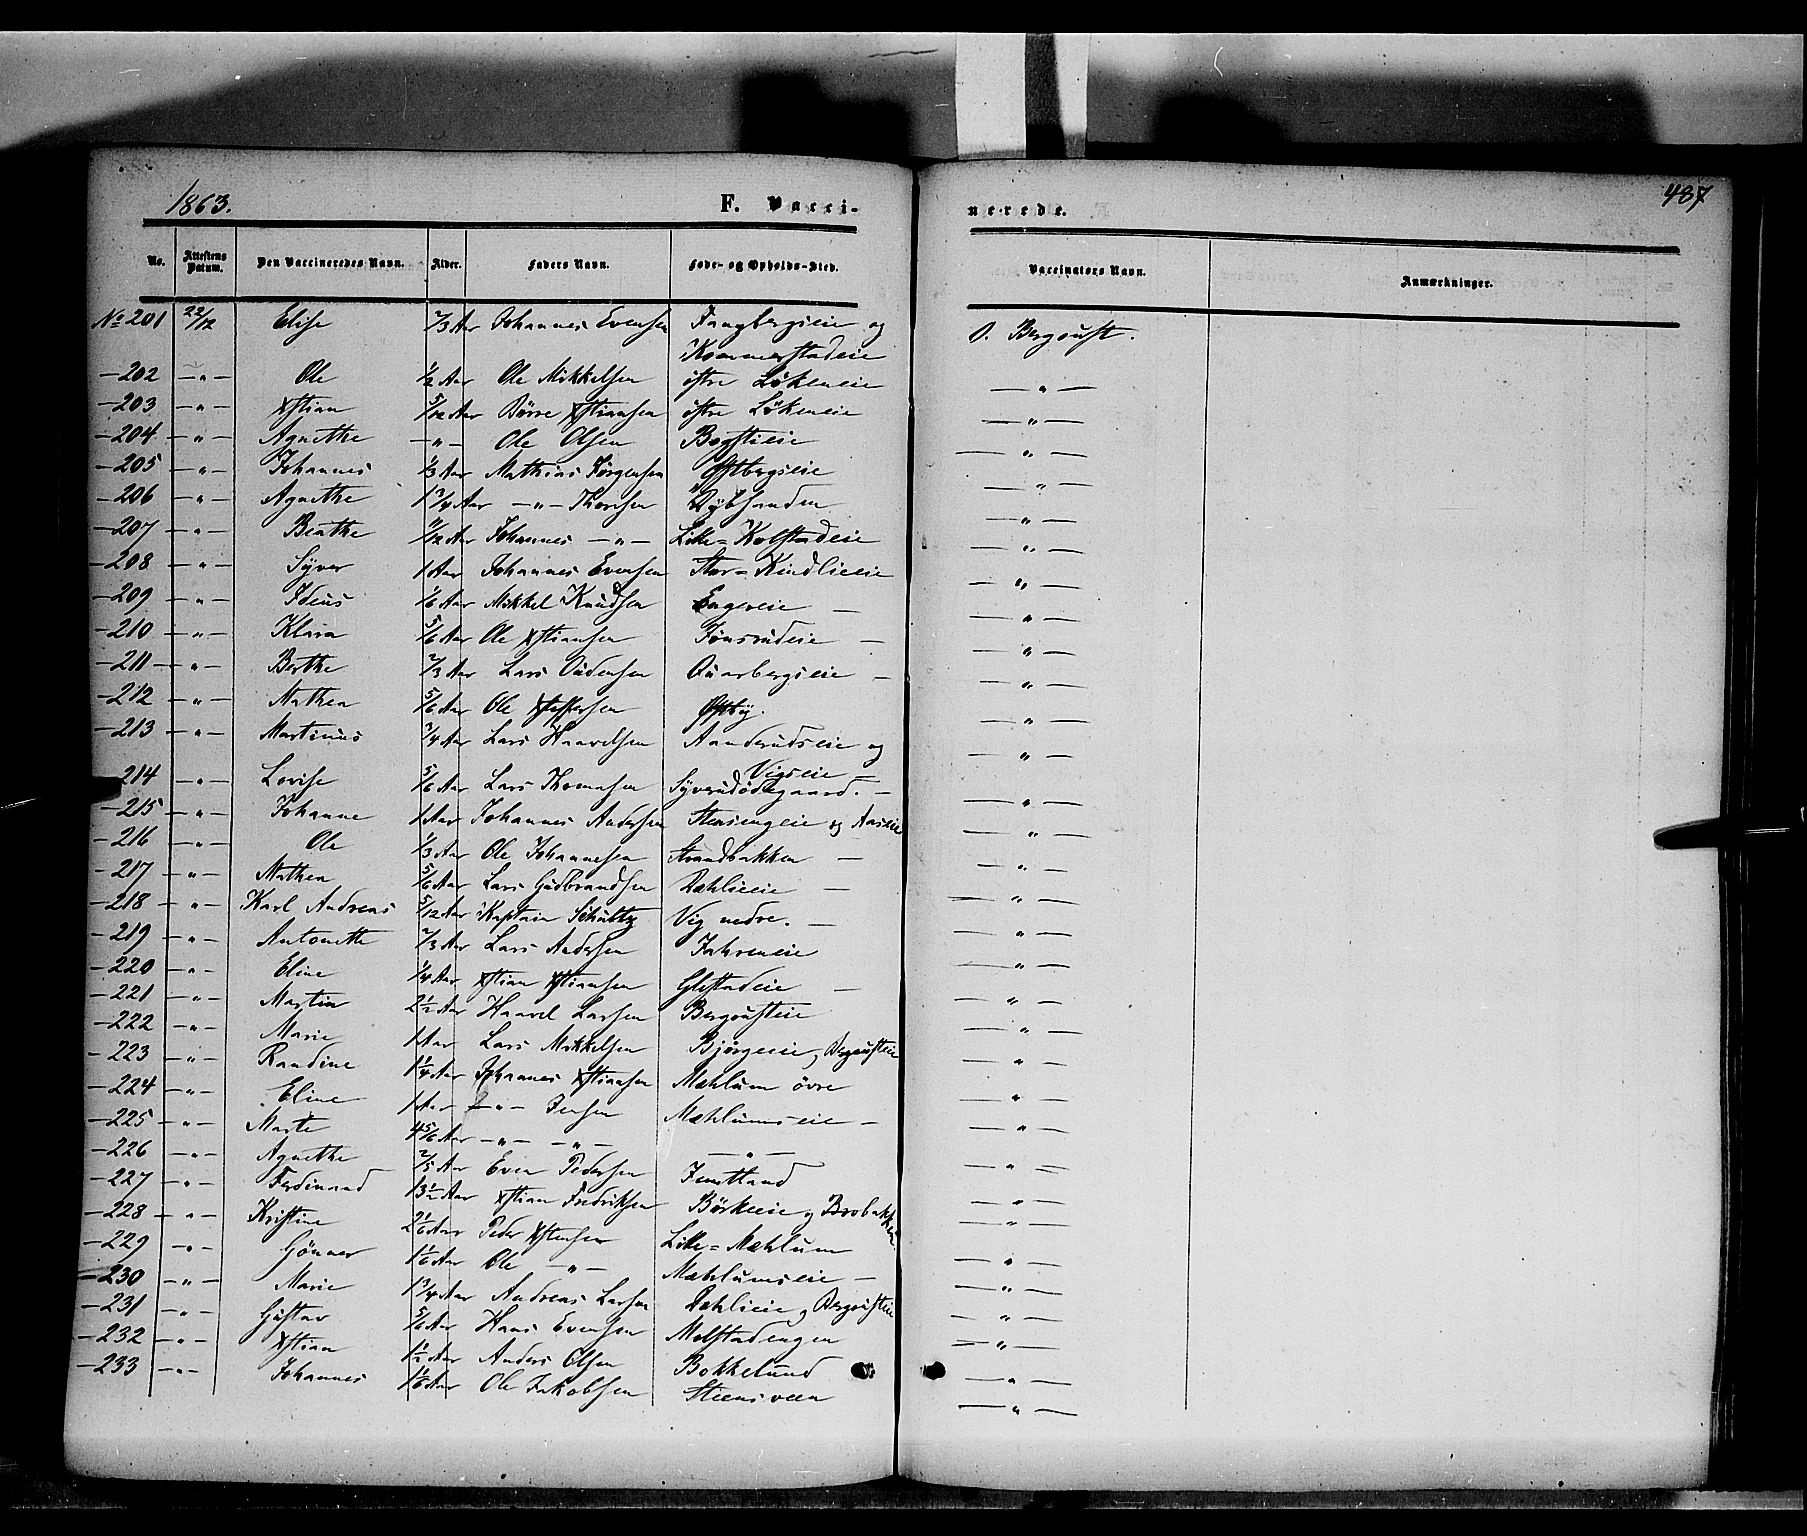 1863.
F. Vacci-
nerede.
487
No. Attestens Datum. Den Vaccineredes Navn. Alder. Faders Navn. Føde- og Opholds-Sted. Vaccinators Navn. Anmærkninger.
No 201 22/12 Elise 2/3 Aar Johannes Evensen Fangbergseie og O. Bergoust.
Kommerstadeie
-202 -"- Ole 1/2 Aar Ole Mikkelsen östre Lökeneie -"-
-203 -"- Xstian 5/12 Aar Börre Xstiansen östre Lökeneie -"-
-204 -"- Agnethe -"- Ole Olsen Bogstieie -"-
-205 -"- Johannes 1/3 Aar Mathias Jörgensen Ostbergseie -"-
-206 -"- Agnethe 1 3/4 Aar -"- Thorsen Dybsanden -"-
-207 -"- Beathe Johannes -"- Lille=Kolstadeie -"-
-208 -"- Syver 1 Aar Johannes Evensen Stor=Kindlieeie -"-
-209 -"- 1/6 Aar Mikkel Knudsen Engeeie -"-
-210 -"- Klara 5/6 Aar Ole Xstiansen Jönsrudeie -"-
-211 -"- Berthe 2/3 Aar Lars Audensen Quarbergseie -"-
-212 -"- Mathea 5/6 Aar Ole Xstoffersen Ostby. -"-
-213 -"- Martinus 3/4 Aar Lars Haavelsen Aanderudseie og -"-
Vigseie
-214 -"- Lovise 5/6 Aar Lars Thomasen Syverudödegaard. -"-
-215 -"- Johanne 1 Aar Johannes Andersen Stensengeie og Aaseie -"-
-216 -"- Ole 1/3 Aar Ole Johannesen Strandbakken -"-
-217 -"- Mathea 5/6 Aar Lars Gudbrandsen Dæhlieeie -"-
-218 -"- Karl Andreas 5/12 Aar Kaptain Schultz Vig nedre. -"-
-219 -"- Antonette 2/3 Aar Lars Andersen Jahreneie -"-
-220 -"- Eline 1/4 Aar Xstian Xstiansen Glestadeie -"-
-221 -"- Martin 2 1/2 Aar Haavel Larsen Bergousteie -"-
-222 -"- Marie 1 Aar Lars Mikkelsen Bjørgeeie, Bergousteie -"-
-223 -"- Randine 1 1/4 Aar Johannes Xstiansen Mæhlum övre -"-
-224 -"- Eline 1 Aar -"- Jensen Mæhlumseie -"-
-225 -"- Marte 4 5/6 Aar -"- -"- -"- -"-
-226 -"- Agnethe 2/5 Aar Even Pedersen Jemtland -"-
-227 -"- Ferdinand 13 1/2 Aar Xstian Fredriksen Börkeeie og Brobakken. -"-
-228 -"- Kristine 2 1/6 Aar Peder Xstensen Lille=Mæhlum -"-
-229 -"- Gönner 1 1/6 Aar Ole -"- Mæhlumseie -"-
-230 -"- Marie 1 3/4 Aar Andreas Larsen Dæhlieie, Bergousteie -"-
-231 -"- Gustav 5/6 Aar Hans Evensen Molstadengen -"-
-232 -"- Xstian 1 1/2 Aar Anders Olsen Bokkelund -"-
-233 -"- Johannes 1 1/6 Aar Ole Jakobsen Steensveen -"-